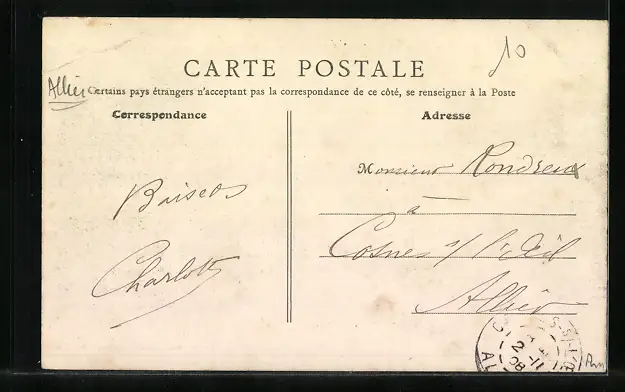 10
CARTE POSTALE
Allier
Certains pays étrangers n'acceptant pas la correspondance de ce côté, se renseigner à la Poste
Correspondance
Adresse
Monsieur Rondreux
à
Baisers
Cosnes s/ l'Œil
Charlotte
Allier